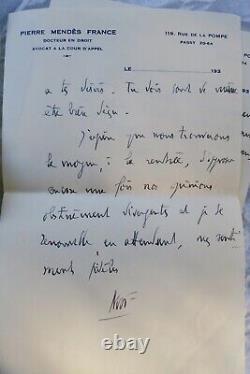 PIERRE MENDÈS FRANCE
DOCTEUR EN DROIT
AVOCAT A LA COUR D'APPEL
119, RUE DE LA POMPE
PASSY 20-64
LE 193
a tes désirs. Tu dois tout de même
être bien déçu.
J'espère que nous trouverons
le moyen, à la rentrée, d'
encore une fois nos opinions
obstinément divergentes et je te
renouvelle en attendant, mes senti-
ments fidèles